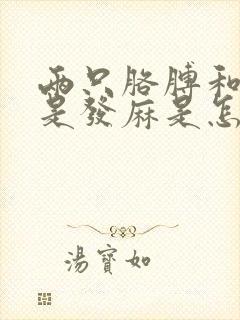 两只胳膊和
是發麻是怎
湯寶如